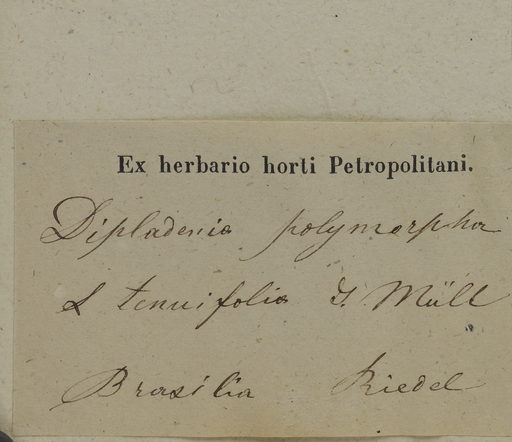 Ex herbario horti Petropolitani.
Dipladenia polymorpha
α tenuifolia J. Müll
Brasilia Riedel